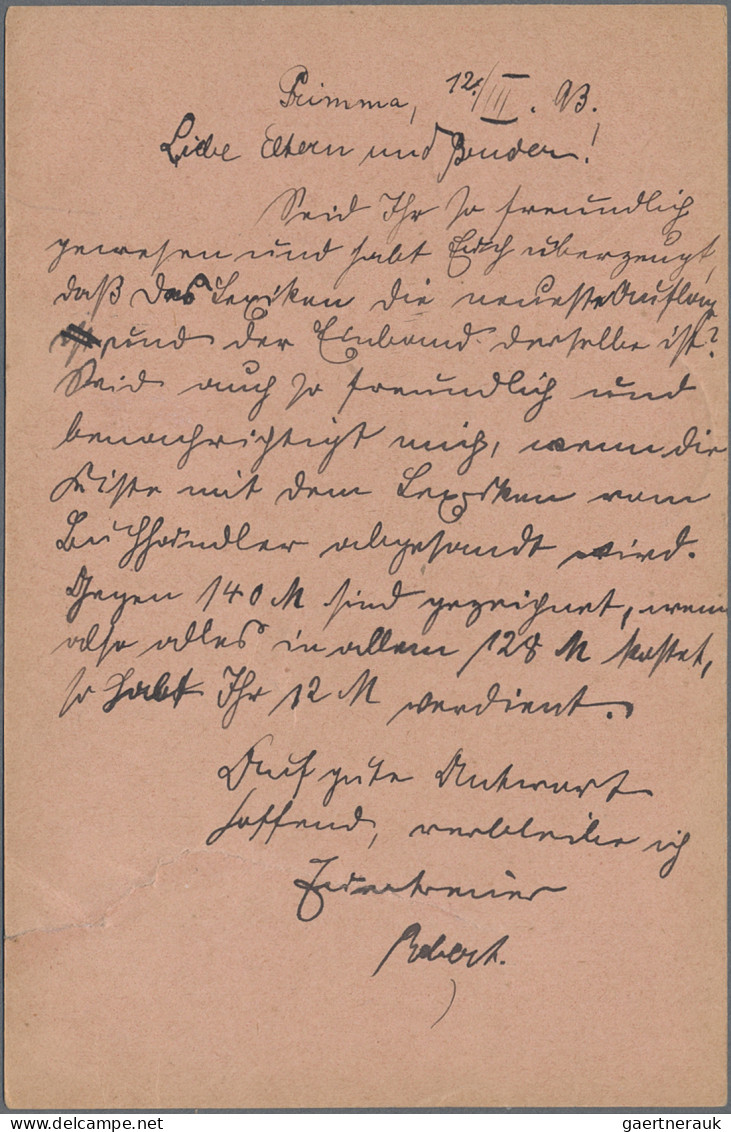 Grimma, 12./III. 93.
Liebe Eltern und Bruder!
Seid Ihr so freundlich
gewesen und habt Euch überzeugt,
daß das Lexikon die neueste Auflage
und der Einband derselbe ist?
Seid auch so freundlich und
benachrichtigt mich, wenn die
Kiste mit dem Lexikon vom
Buchhändler abgesandt wird.
Gegen 140 M sind gezeichnet, wenn
also alles in allem 128 M kostet,
so habt Ihr 12 M verdient.
Auf gute Antwort
hoffend, verbleibe ich
Euer treuer
Robert.
gaertnerauk
delcampe.net